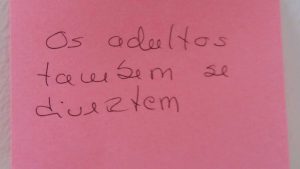 Os adultos
também se
divertem